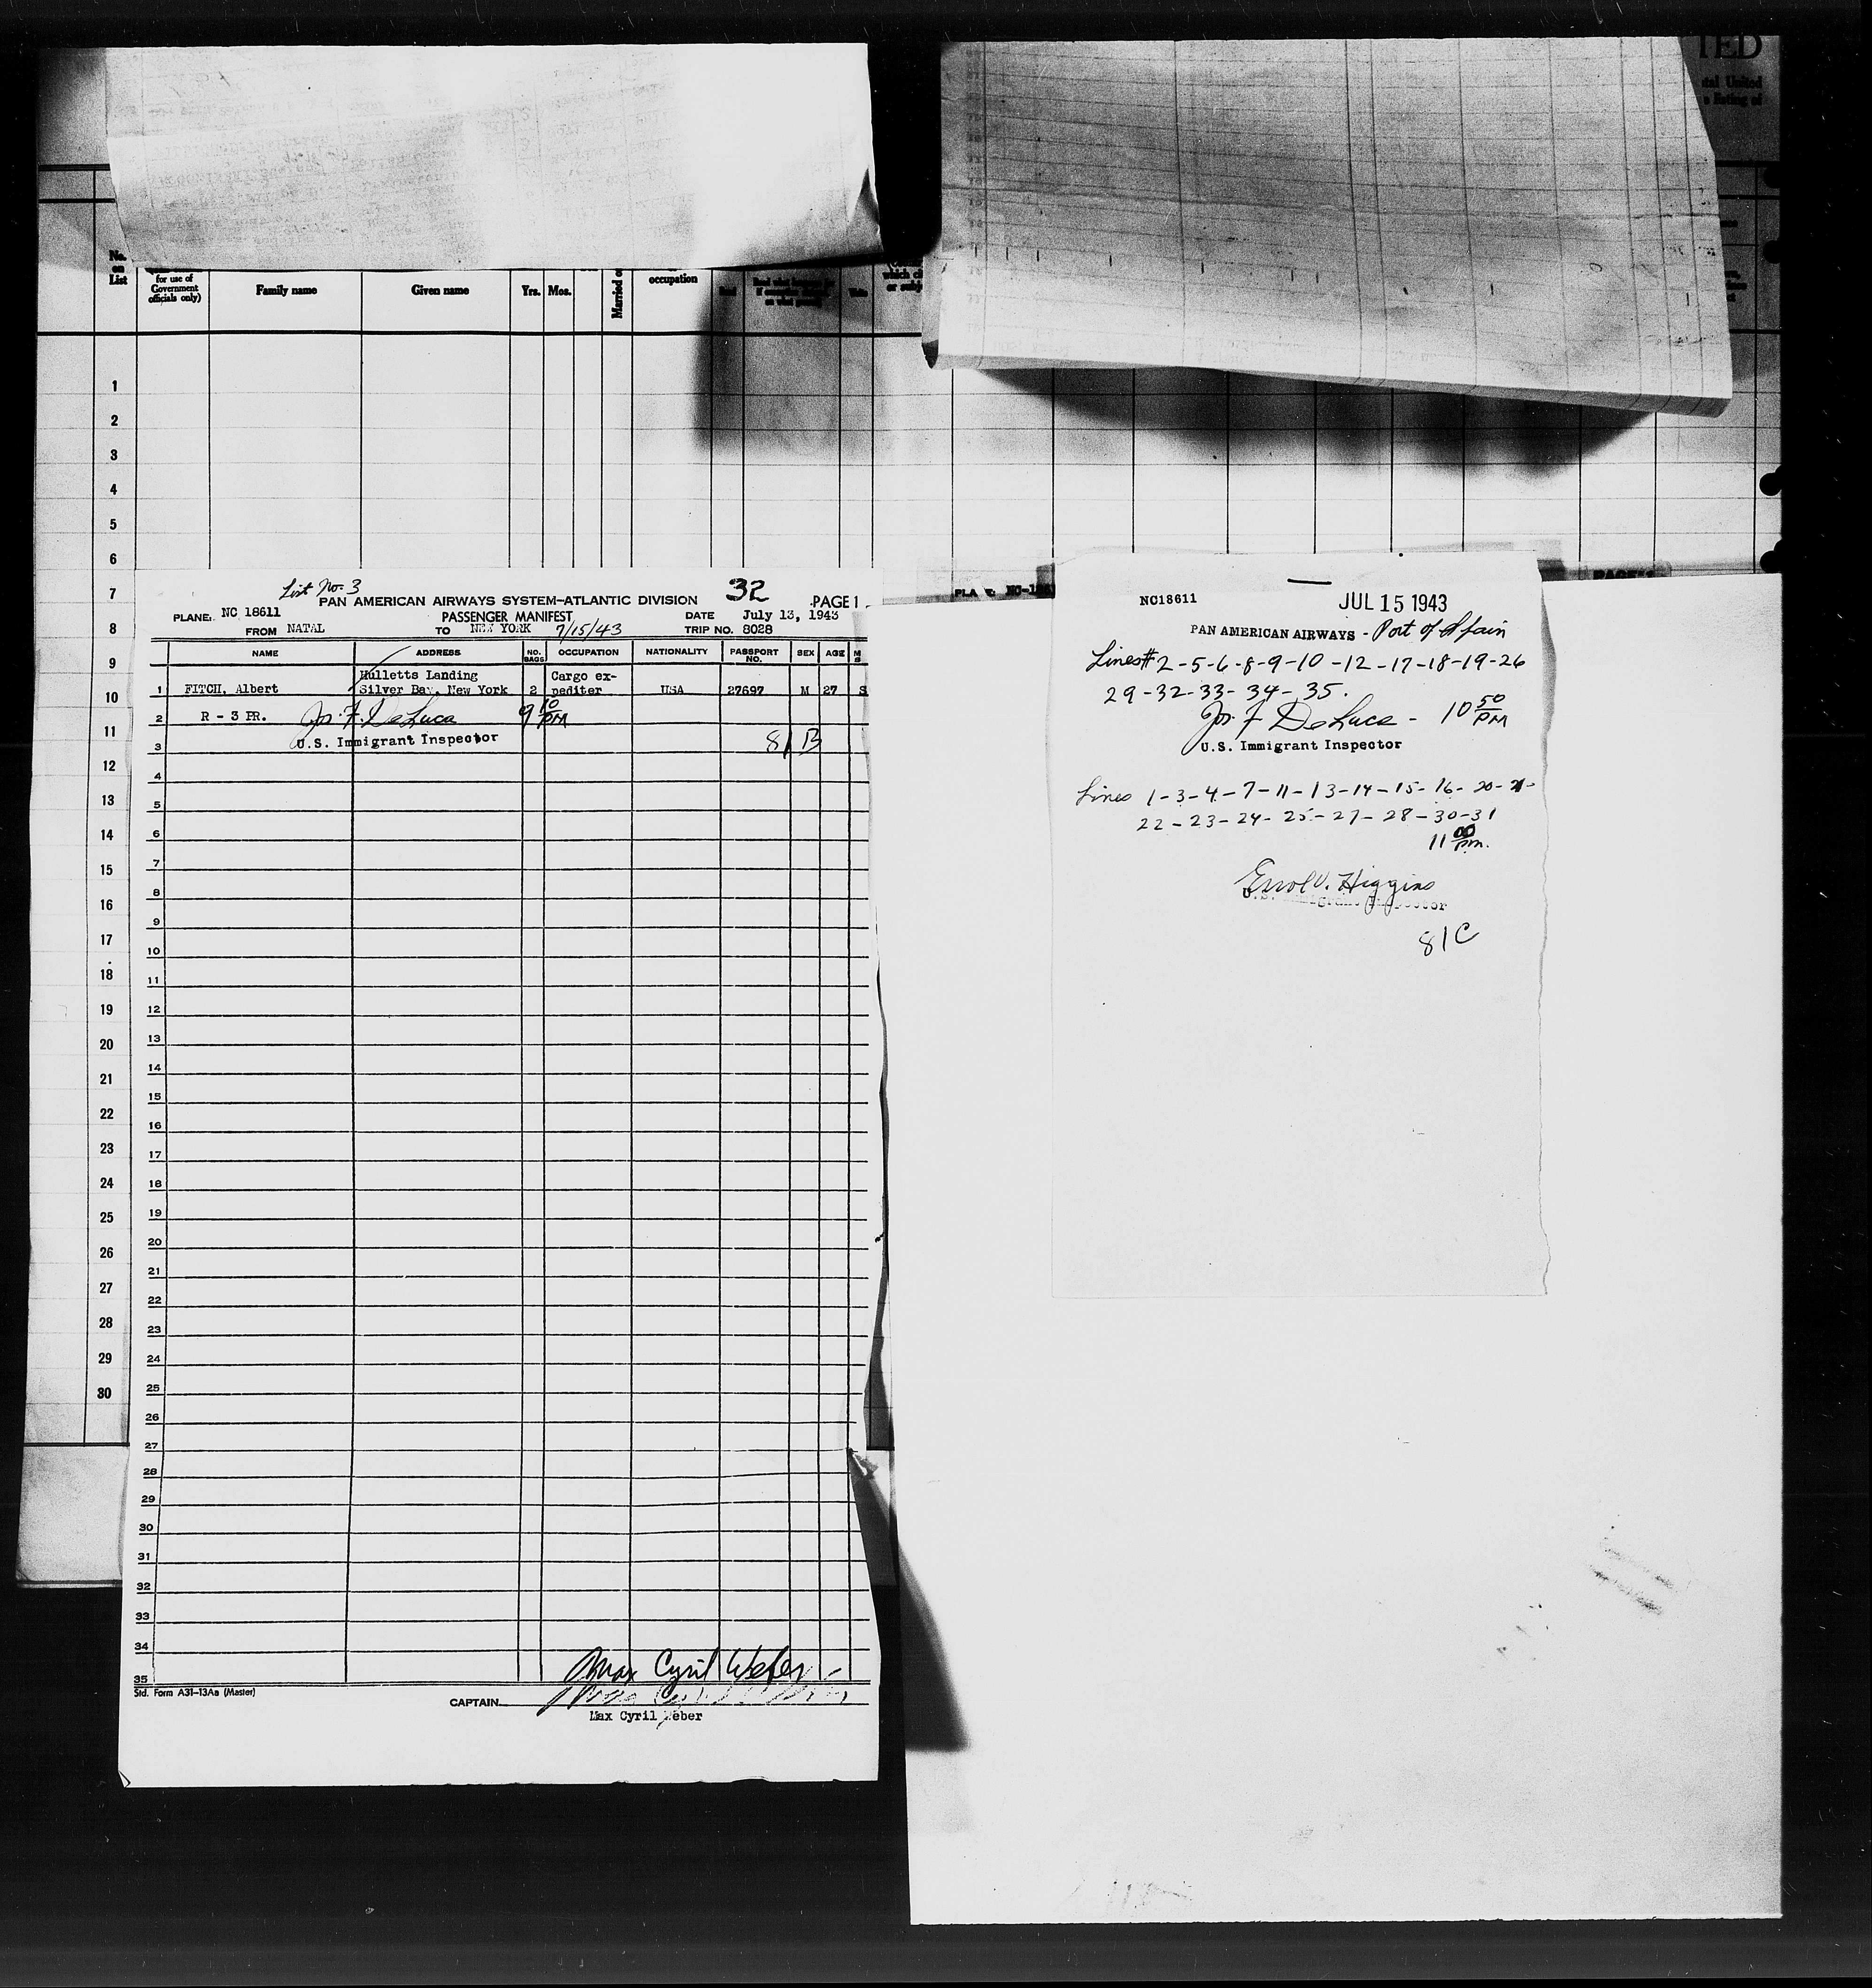 TED
No. on List
for use of Government officials only)
Family name
Given name
Yrs. Mos.
Married o
occupation
which ci
or subj
1
2
3
4
5
6
7
8
9
10
11
12
13
14
15
16
17
18
19
20
21
22
23
24
25
26
27
28
29
30
List No. 3
32
PAN AMERICAN AIRWAYS SYSTEM—ATLANTIC DIVISION
PAGE 1
PLANE: NC 18611
PASSENGER MANIFEST
DATE July 13, 1943
FROM NATAL
TO NEW YORK 7/15/43
TRIP NO. 8028
NAME ADDRESS NO. BAGS OCCUPATION NATIONALITY PASSPORT NO. SEX AGE M S
Hulletts Landing Cargo ex-
1 FITCH, Albert Silver Bay, New York 2 pediter USA 27697 M 27 S
2 R - 3 PR. Jos. F. DeLuca 9 10 PM
U.S. Immigrant Inspector
3 81 B
4
5
6
7
8
9
10
11
12
13
14
15
16
17
18
19
20
21
22
23
24
25
26
27
28
29
30
31
32
33
34
35
Max Cyril Weber
Std. Form A31-13Aa (Master)
CAPTAIN
Max Cyril Weber
NC18611
JUL 15 1943
PAN AMERICAN AIRWAYS - Port of Spain
Lines # 2-5-6-8-9-10-12-17-18-19-26
29-32-33-34-35.
Jos. F DeLuca - 10 50 PM
U.S. Immigrant Inspector
Lines 1-3-4-7-11-13-14-15-16-20-21-
22-23-24-25-27-28-30-31
11 00 pm.
Errol V. Higgins
U.S. Immigrant Inspector
81C